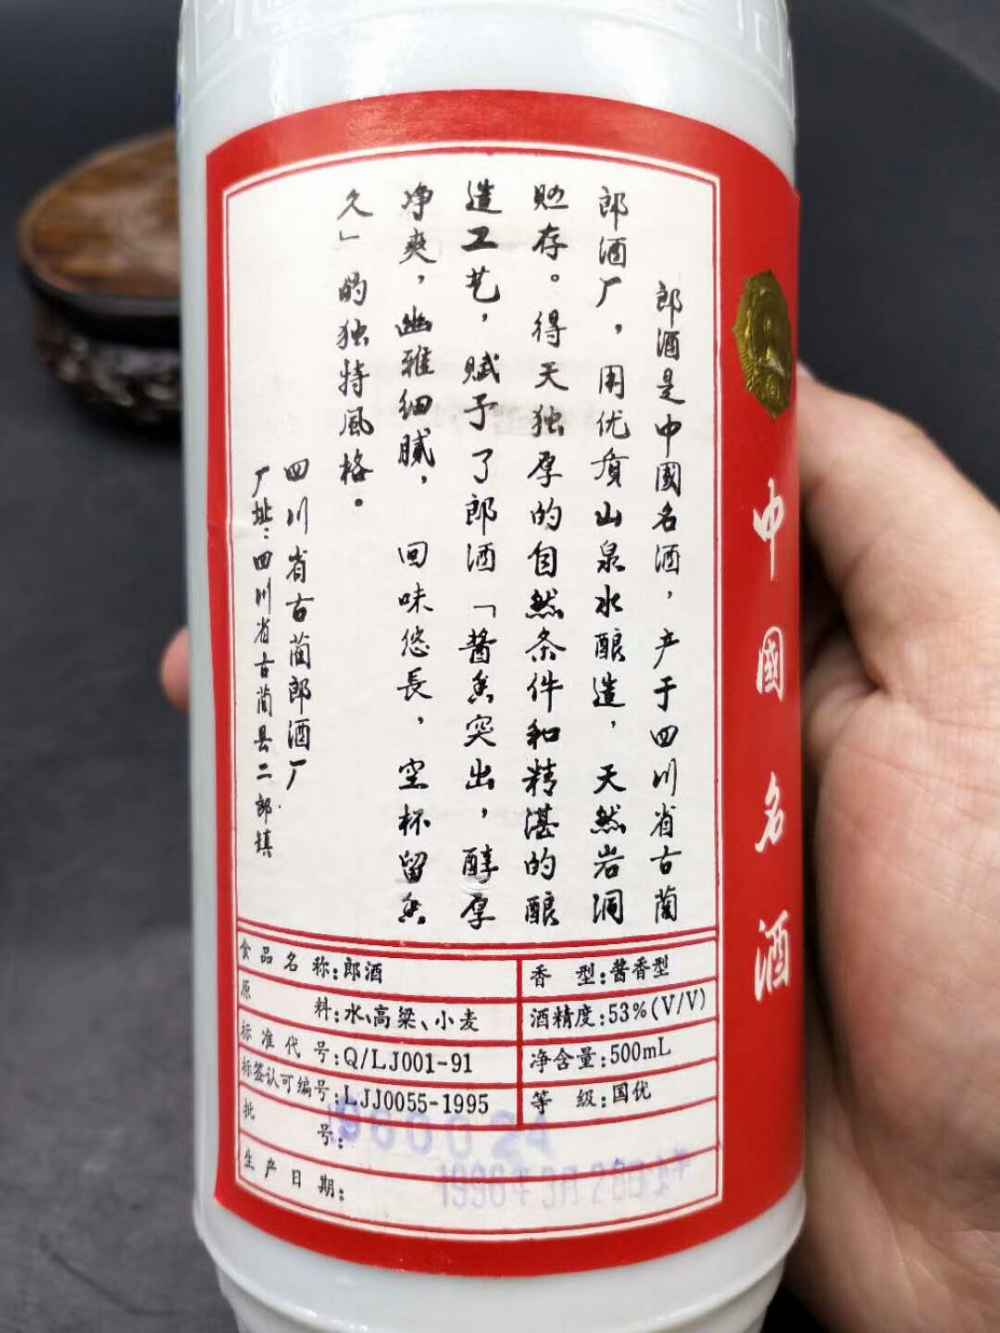 中國名酒
郎酒是中國名酒，产于四川省古蔺
郎酒厂，用优质山泉水酿造，天然岩洞
贮存。得天独厚的自然条件和精湛的酿
造工艺，赋予了郎酒「醬香突出，醇厚
净爽，幽雅细腻，回味悠長，空杯留香
久」的独特風格。
四川省古蔺郎酒厂
厂址：四川省古蔺县二郎镇
食品名称:郎酒
香型:酱香型
原料:水、高梁、小麦
酒精度:53%(V/V)
标准代号:Q/LJ001-91
净含量:500mL
标签认可编号:LJJ0055-1995
等级:国优
批号:
960024
生产日期:
1996年3月28日